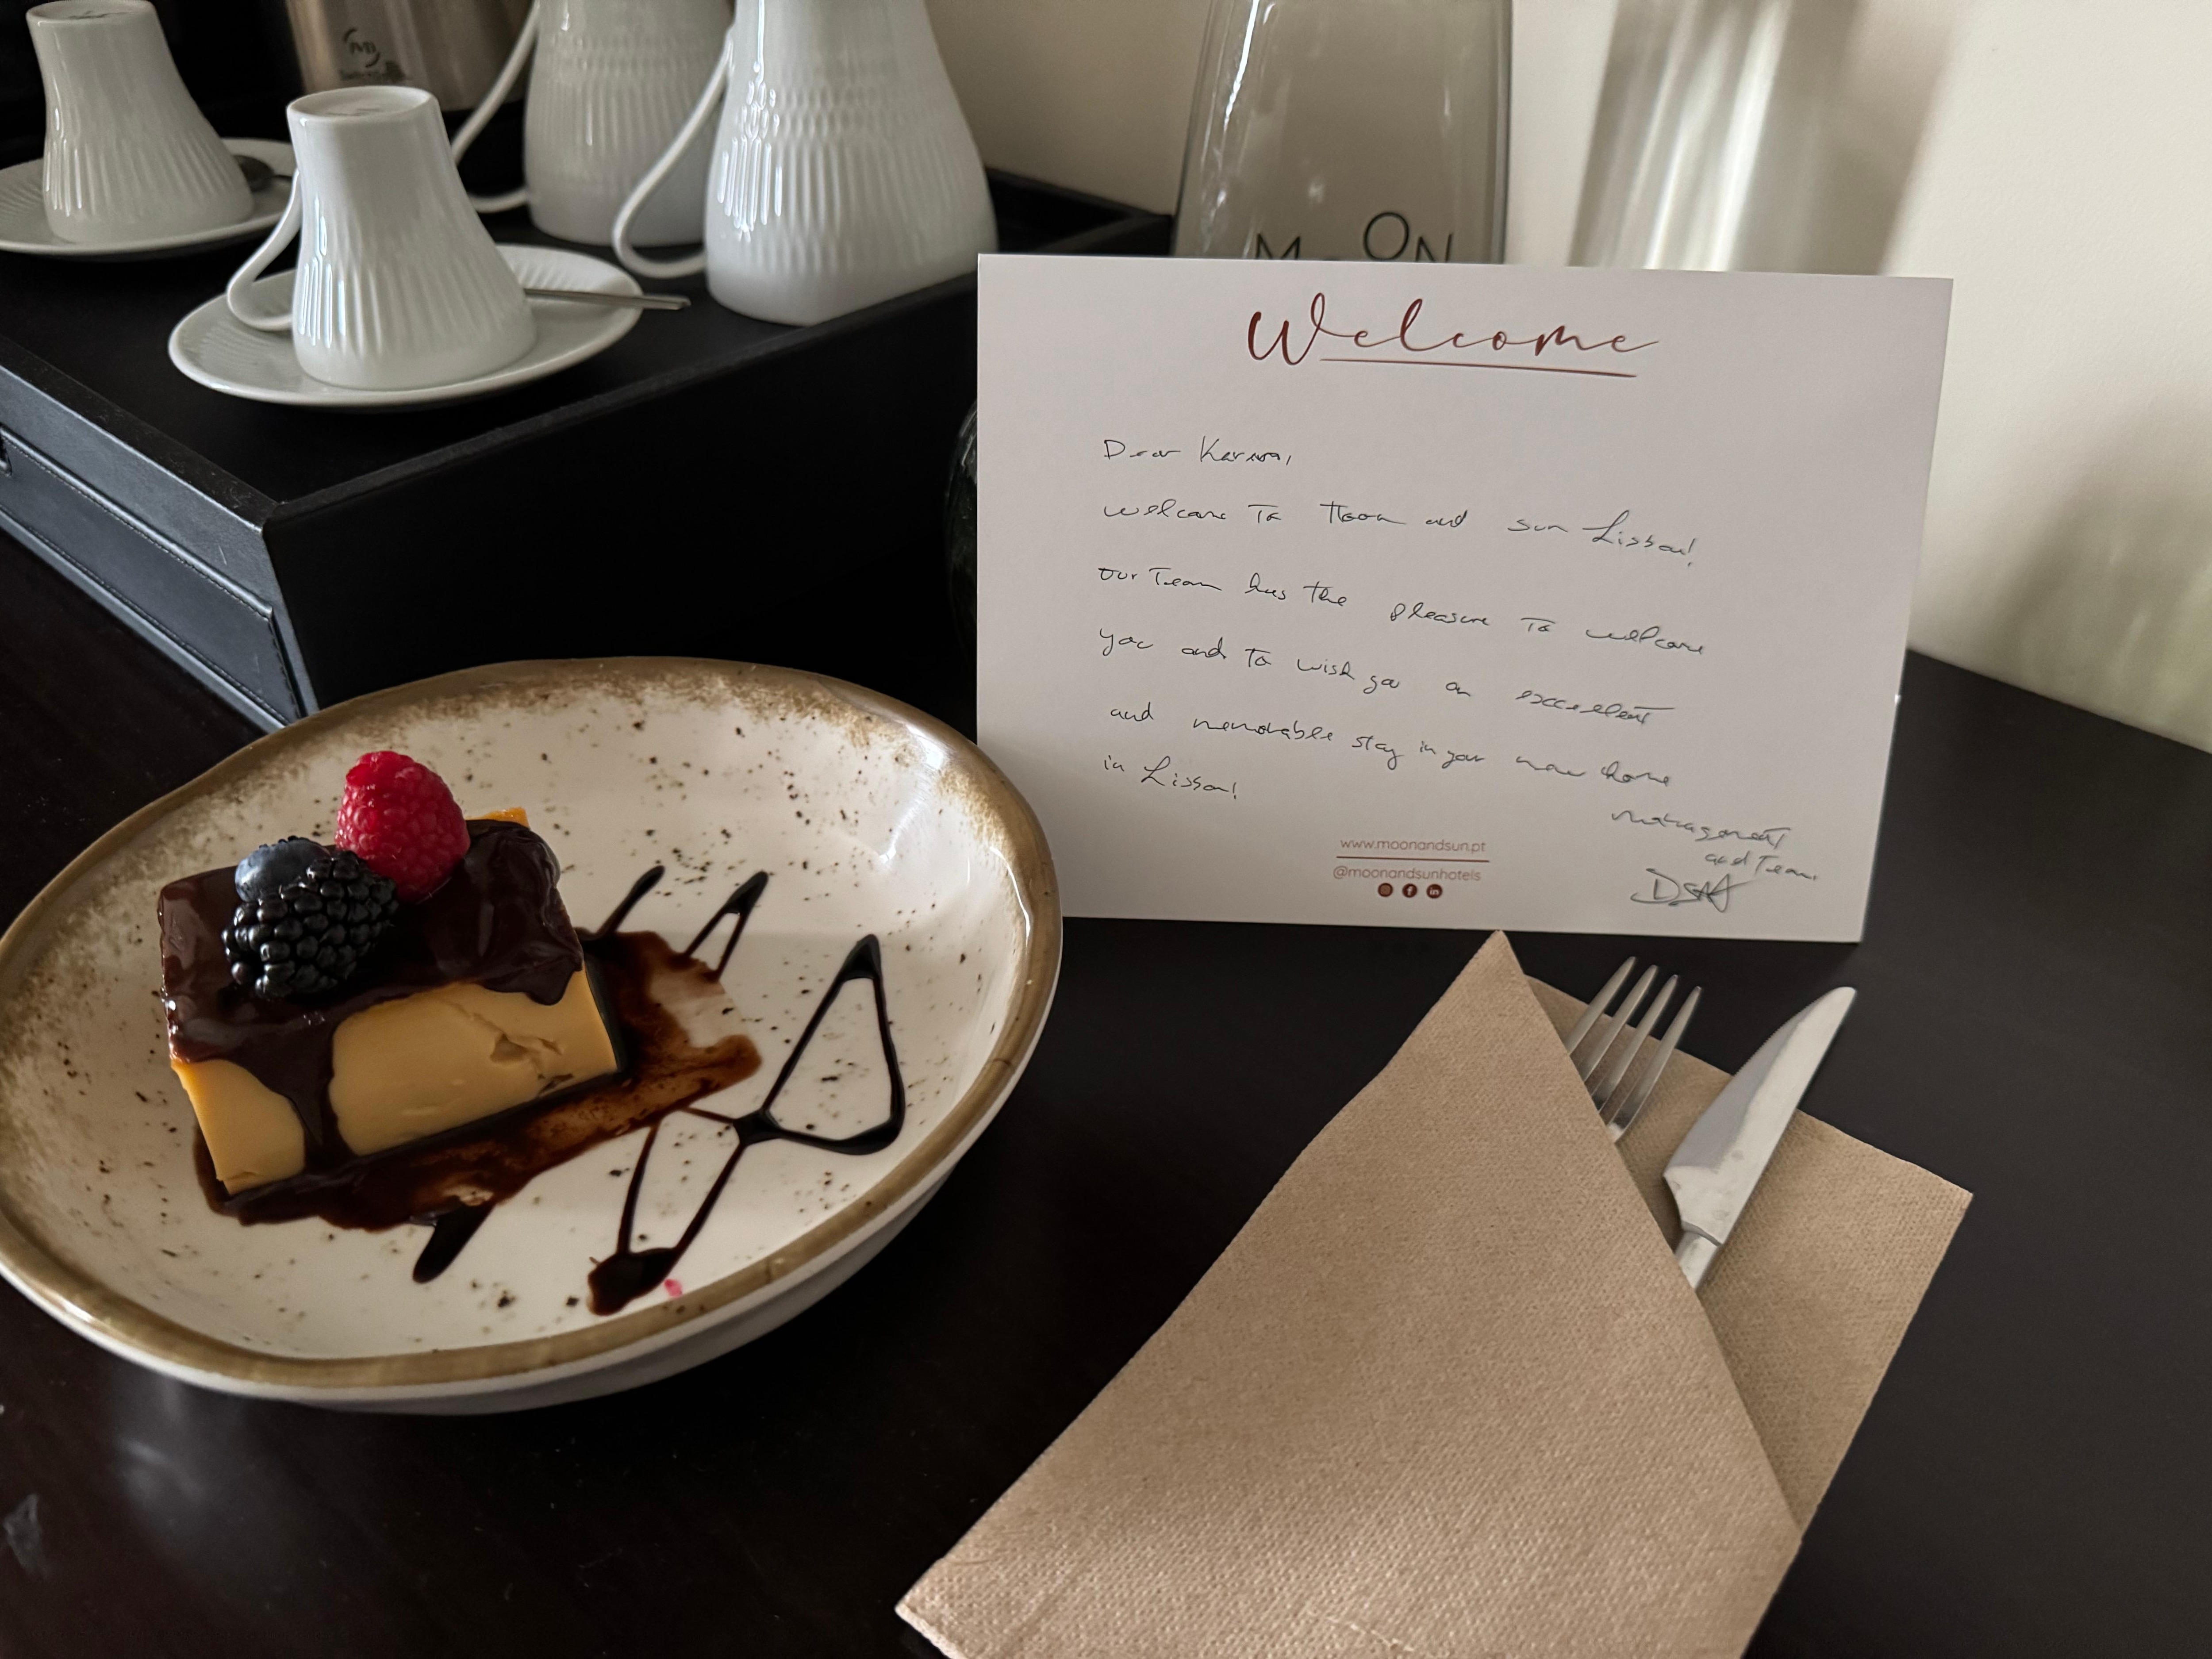 MOON
Welcome
Dear
Welcome To Moon and Sun Lisboa!
Our Team has the pleasure To welcome
you and To wish you an excellent
and memorable stay in your new home
in Lisboa!
Management
and Team.
www.moonandsun.pt
@moonandsunhotels